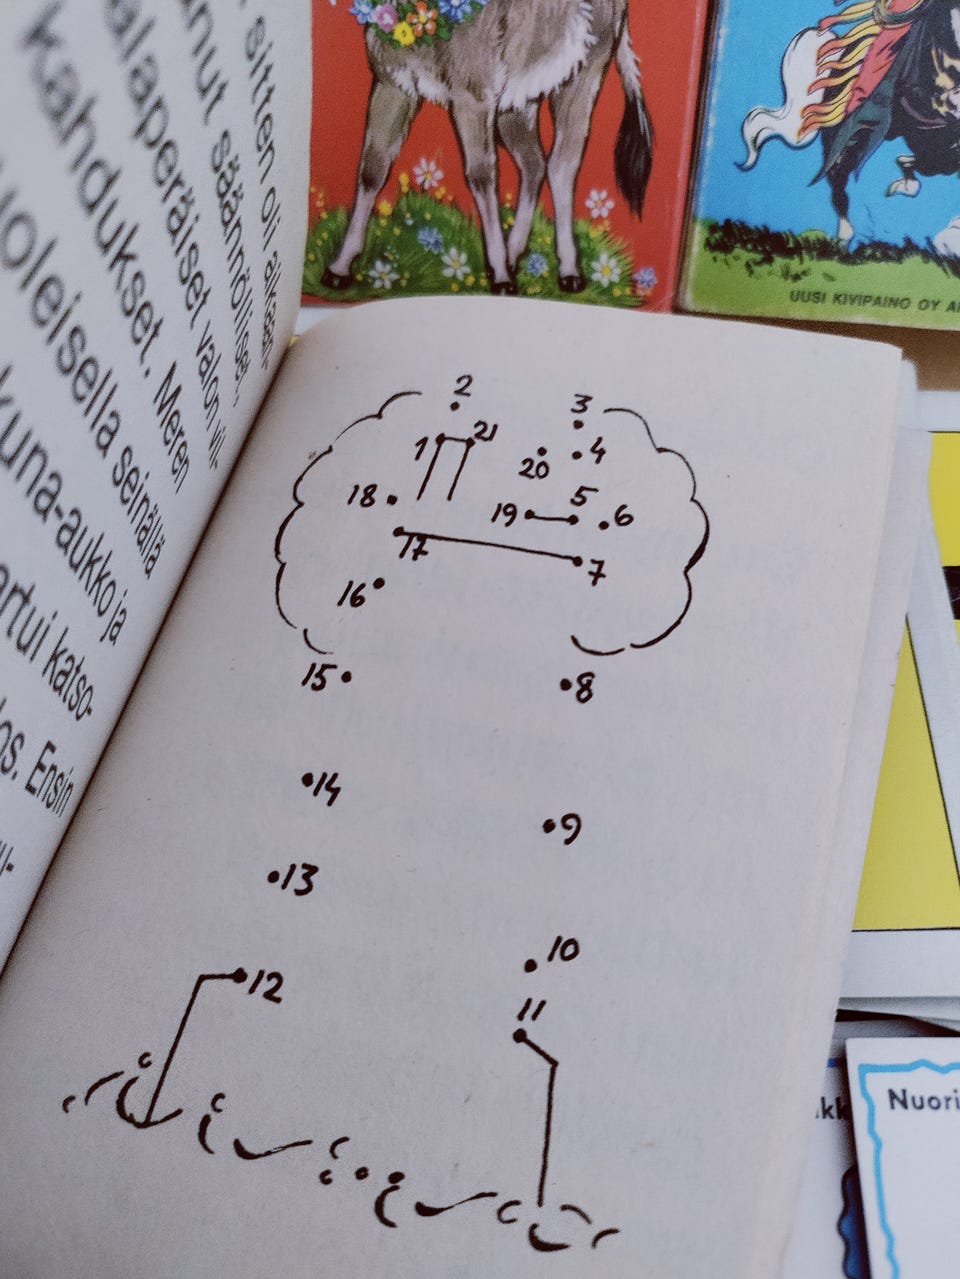 sitten oli aikaan-
nut säännölliset,
alaperäiset valon vii-
kahdukset. Meren
uoleisella seinällä
kuna-aukko ja
artui katso-
os. Ensin
UUSI KIVIPAINO OY
2
3
1 21
20 4
18 19 5 6
17 7
16
15 8
14
9
13
10
12
11
Nuori